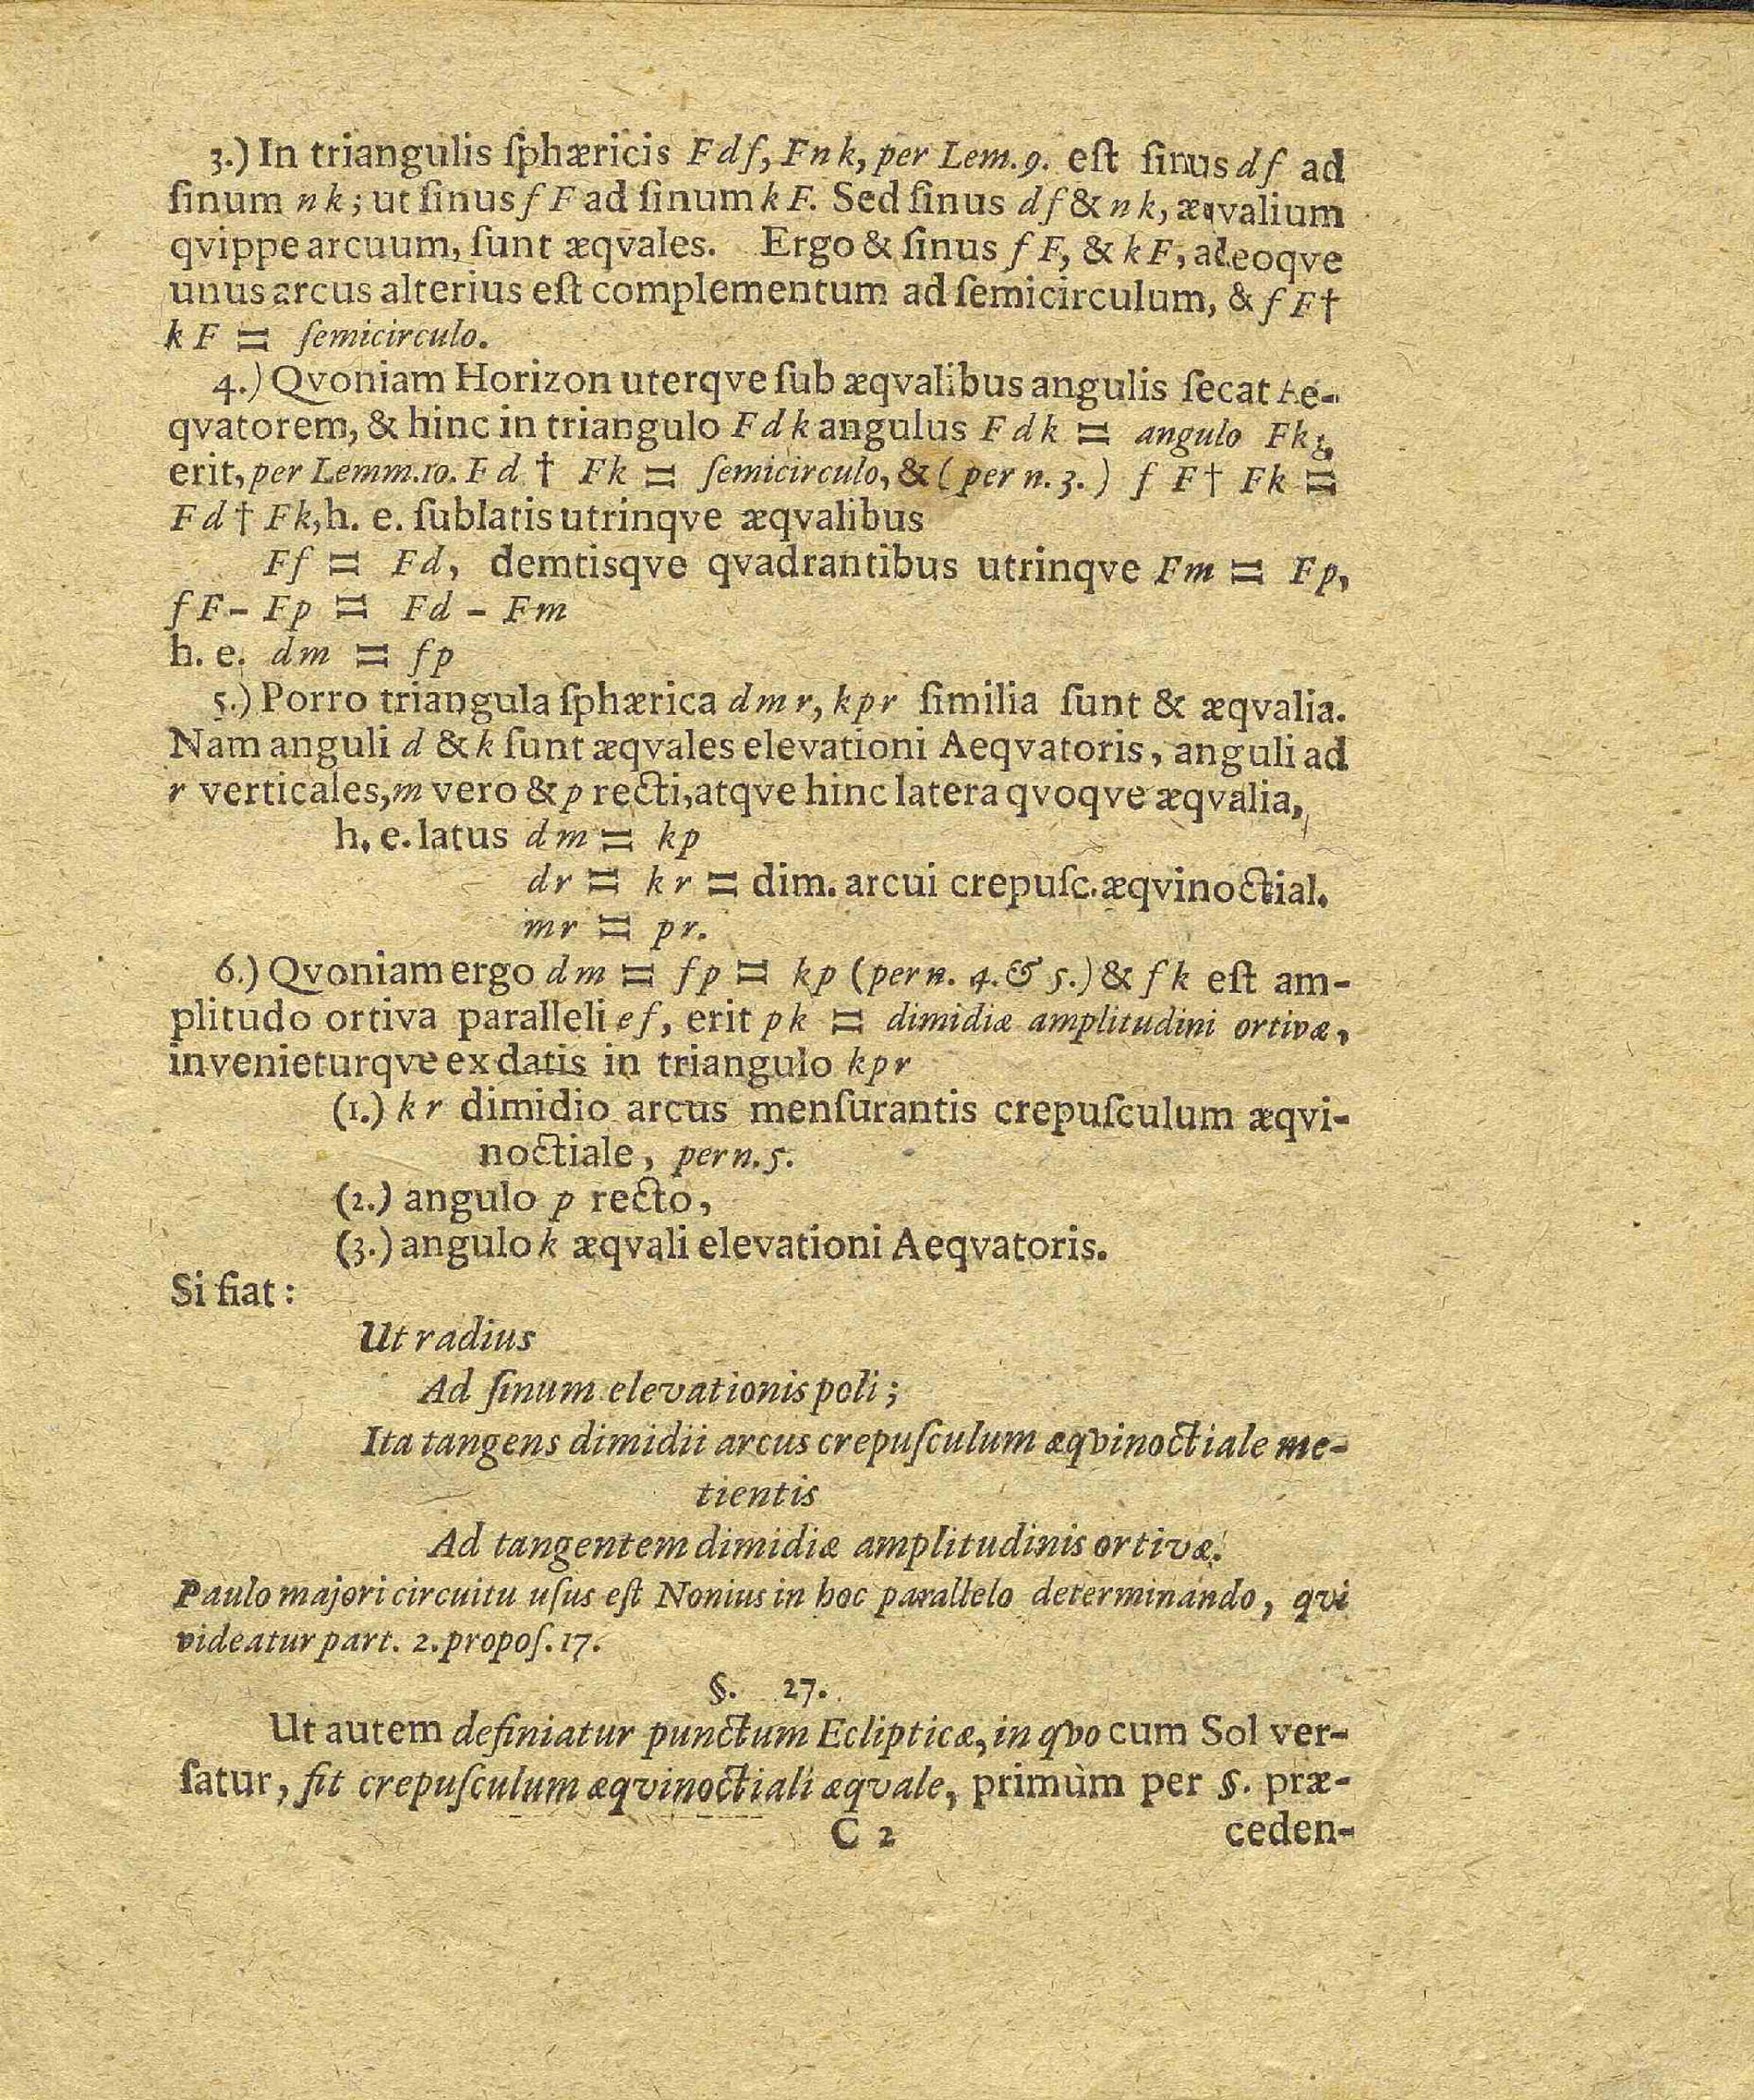 3.) In triangulis ſphæricis F d f, F n k, per Lem. 9. eſt ſinus d f ad
ſinum n k; ut ſinus f F ad ſinum k F. Sed ſinus d f & n k, æqvalium
qvippe arcuum, ſunt æqvales. Ergo & ſinus f F, & k F, adeoqve
unus arcus alterius eſt complementum ad ſemicirculum, & f F †
k F = ſemicirculo.
4.) Qvoniam Horizon uterqve ſub æqvalibus angulis ſecat Ae-
qvatorem, & hinc in triangulo F d k angulus F d k = angulo F k
erit, per Lemm. 10. F d † F k = ſemicirculo, & (per n. 3.) f F † F k =
F d † F k, h. e. ſublatis utrinqve æqvalibus
F f = F d, demtisqve qvadrantibus utrinqve F m = F p,
f F - F p = F d - F m
h. e. d m = f p
5.) Porro triangula ſphærica d m r, k p r ſimilia ſunt & æqvalia.
Nam anguli d & k ſunt æqvales elevationi Aeqvatoris, anguli ad
r verticales, m vero & p recti, atqve hinc latera qvoqve æqvalia,
h. e. latus d m = k p
d r = k r = dim. arcui crepuſc. æqvinoctial.
m r = p r.
6.) Qvoniam ergo d m = f p = k p (per n. 4. & 5.) & f k eſt am-
plitudo ortiva paralleli e f, erit p k = dimidiæ amplitudini ortivæ,
invenieturqve ex datis in triangulo k p r
(1.) k r dimidio arcus menſurantis crepuſculum æqvi-
noctiale, per n. 5.
(2.) angulo p recto,
(3.) angulo k æqvali elevationi Aeqvatoris.
Si fiat:
Ut radius
Ad ſinum elevationis poli;
Ita tangens dimidii arcus crepuſculum æqvinoctiale me-
tientis
Ad tangentem dimidiæ amplitudinis ortivæ.
Paulo majori circuitu uſus eſt Nonius in hoc parallelo determinando, qvi
videatur part. 2. propoſ. 17.
§. 27.
Ut autem definiatur punctum Eclipticæ, in qvo cum Sol ver-
ſatur, fit crepuſculum æqvinoctiali æqvale, primùm per §. præ-
C 2 ceden-